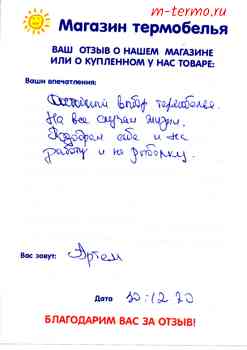 m-termo.ru
Магазин термобелья
ВАШ ОТЗЫВ О НАШЕМ МАГАЗИНЕ
ИЛИ О КУПЛЕННОМ У НАС ТОВАРЕ:
Ваши впечатления:
выбор термобелья.
На все случаи жизни.
Подобрал себе и на
работу и на рыбалку.
Вас зовут: Артем
Дата 30.12.20
БЛАГОДАРИМ ВАС ЗА ОТЗЫВ!